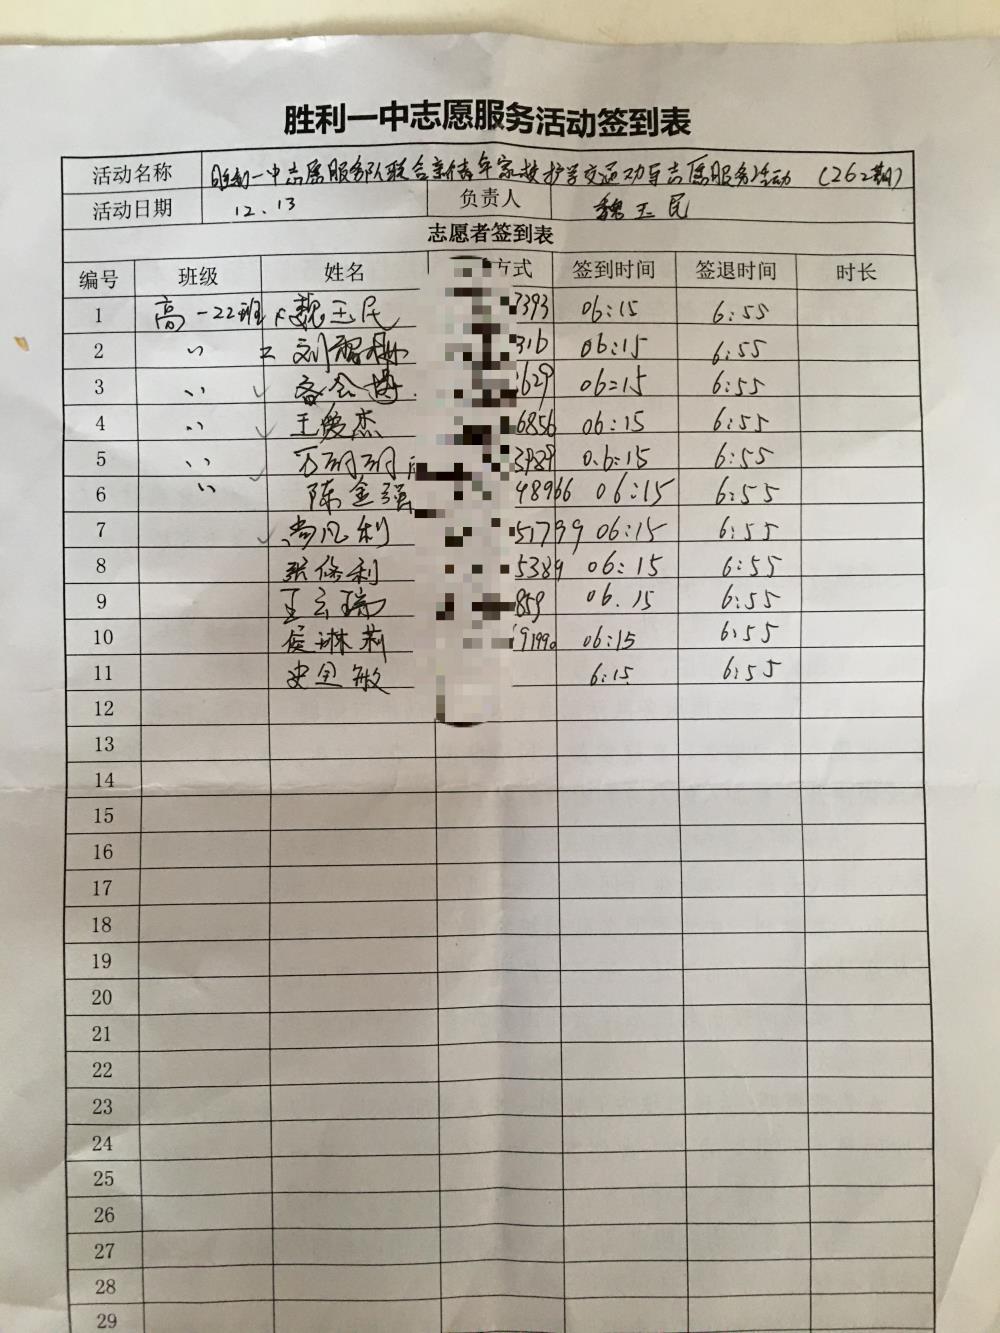 胜利一中志愿服务活动签到表
活动名称 胜利一中志愿服务队联合 家校护学交通劝导志愿服务活动 (262期)
活动日期 12.13 负责人 魏玉民
志愿者签到表
编号 班级 姓名 方式 签到时间 签退时间 时长
1 高一22班 魏玉民 7393 06:15 6:55
2 〃 刘 316 06:15 6:55
3 〃 1629 06:15 6:55
4 〃 王爱杰 6856 06:15 6:55
5 〃 3989 06:15 6:55
6 〃 陈金强 48966 06:15 6:55
7 尚凡利 51799 06:15 6:55
8 张修利 5389 06:15 6:55
9 王云瑞 859 06.15 6:55
10 侯琳莉 9199 06:15 6:55
11 史全敏 6:15 6:55
12
13
14
15
16
17
18
19
20
21
22
23
24
25
26
27
28
29